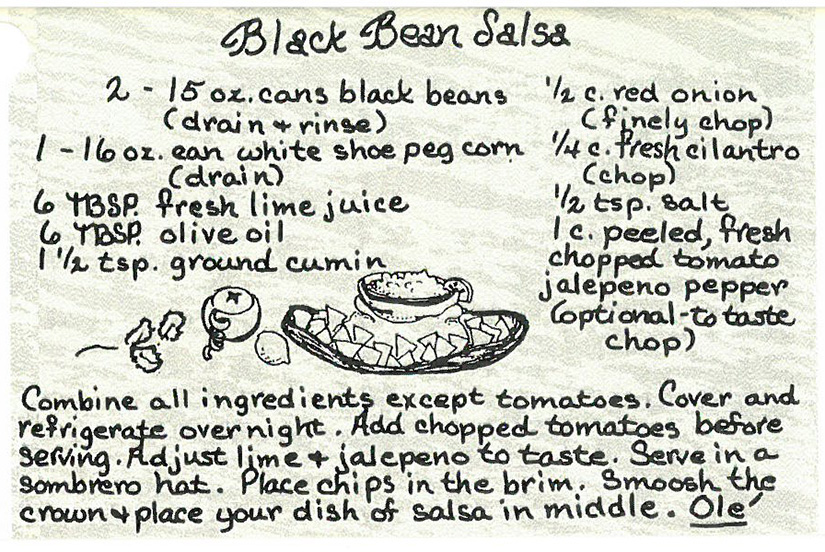 Black Bean Salsa
2 - 15 oz. cans black beans
(drain + rinse)
1 - 16 oz. can white shoe peg corn
(drain)
6 TBSP. fresh lime juice
6 TBSP. olive oil
1 1/2 tsp. ground cumin
1/2 c. red onion
(finely chop)
1/4 c. fresh cilantro
(chop)
1/2 tsp. salt
1 c. peeled, fresh
chopped tomato
jalepeno pepper
(optional - to taste
chop)
Combine all ingredients except tomatoes. Cover and
refrigerate overnight. Add chopped tomatoes before
serving. Adjust lime + jalepeno to taste. Serve in a
sombrero hat. Place chips in the brim. Smoosh the
crown + place your dish of salsa in middle. Ole´